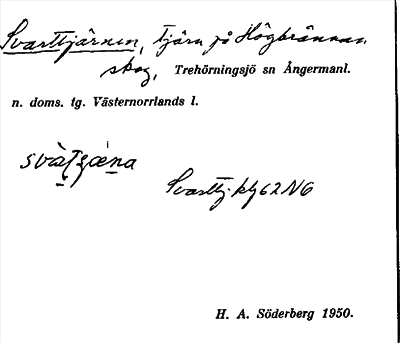 Svarttjärnen, tjärn på Högbrännan
skog, Trehörningsjö sn Ångermanl.
n. doms. tg. Västernorrlands l.
Svarttj. kbl 62 N6
H. A. Söderberg 1950.